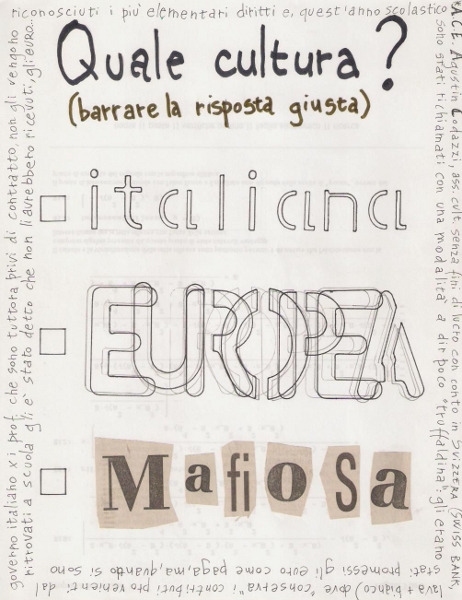 Quale cultura?
(barrare la risposta giusta)
italiana
EUROPEA
Mafiosa
A.C.E. Agustin Codazzi, ass. cult. senza fini di lucro con conto in SVIZZERA (SWISS BANK,
lava + bianco) dove "conserva" i contributi provenienti dal
governo italiano x i prof. che sono tuttora privi di contratto, non gli vengono
riconosciuti i più elementari diritti e, quest'anno scolastico
sono stati richiamati con una modalità a dir poco "truffaldina": gli erano
stati promessi gli euro come paga, ma, quando si sono
ritrovati a scuola gli è stato detto che non li avrebbero ricevuti, gli euro...